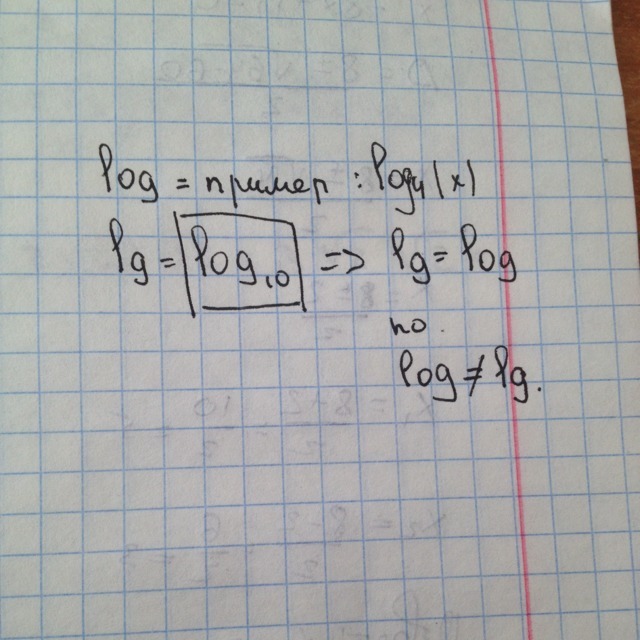 log = пример : log₄|x|
lg = log₁₀ => lg = log
но.
log ≠ lg.